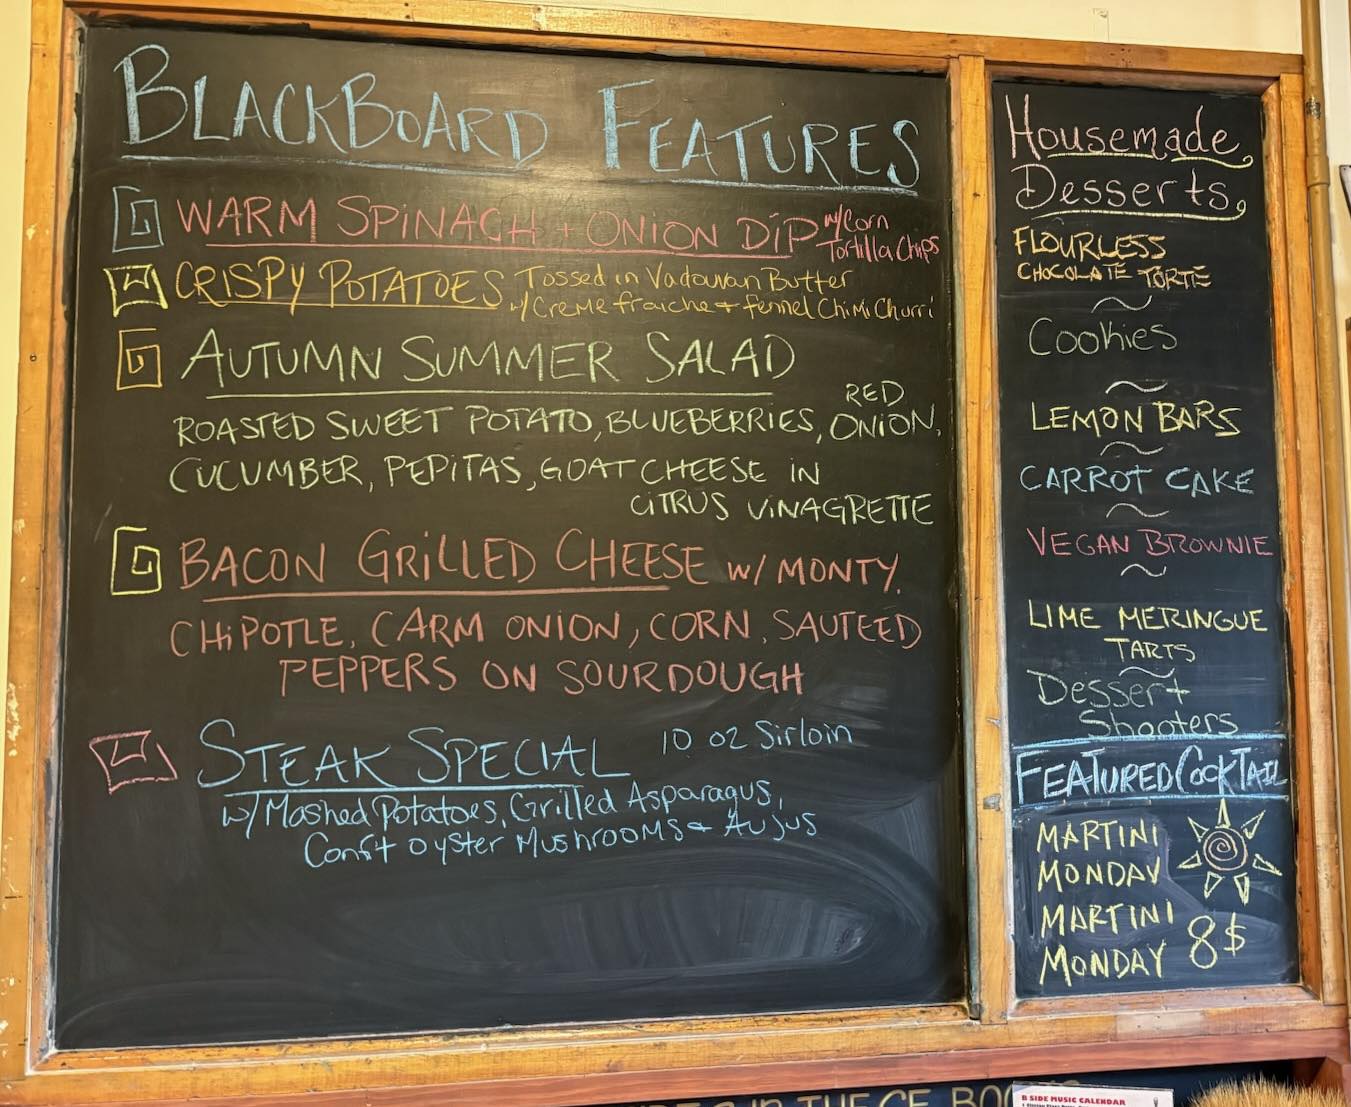 BLACKBOARD FEATURES
WARM SPINACH + ONION DIP w/Corn
Tortilla Chips
CRISPY POTATOES Tossed in Vadouvan Butter
w/Creme fraiche + fennel Chimi Churri
AUTUMN SUMMER SALAD
ROASTED SWEET POTATO, BLUEBERRIES, RED ONION,
CUCUMBER, PEPITAS, GOAT CHEESE IN
CITRUS VINAGRETTE
BACON GRILLED CHEESE W/ MONTY.
CHIPOTLE, CARM ONION, CORN, SAUTEED
PEPPERS ON SOURDOUGH
STEAK SPECIAL 10 oz Sirloin
w/ Mashed Potatoes, Grilled Asparagus,
Confit oyster Mushrooms + Aujus
Housemade
Desserts
FLOURLESS
CHOCOLATE TORTE
Cookies
LEMON BARS
CARROT CAKE
VEGAN BROWNIE
LIME MERINGUE
TARTS
Dessert
Shooters
FEATURED COCKTAIL
MARTINI
MONDAY
MARTINI
MONDAY 8$
B SIDE MUSIC CALENDAR